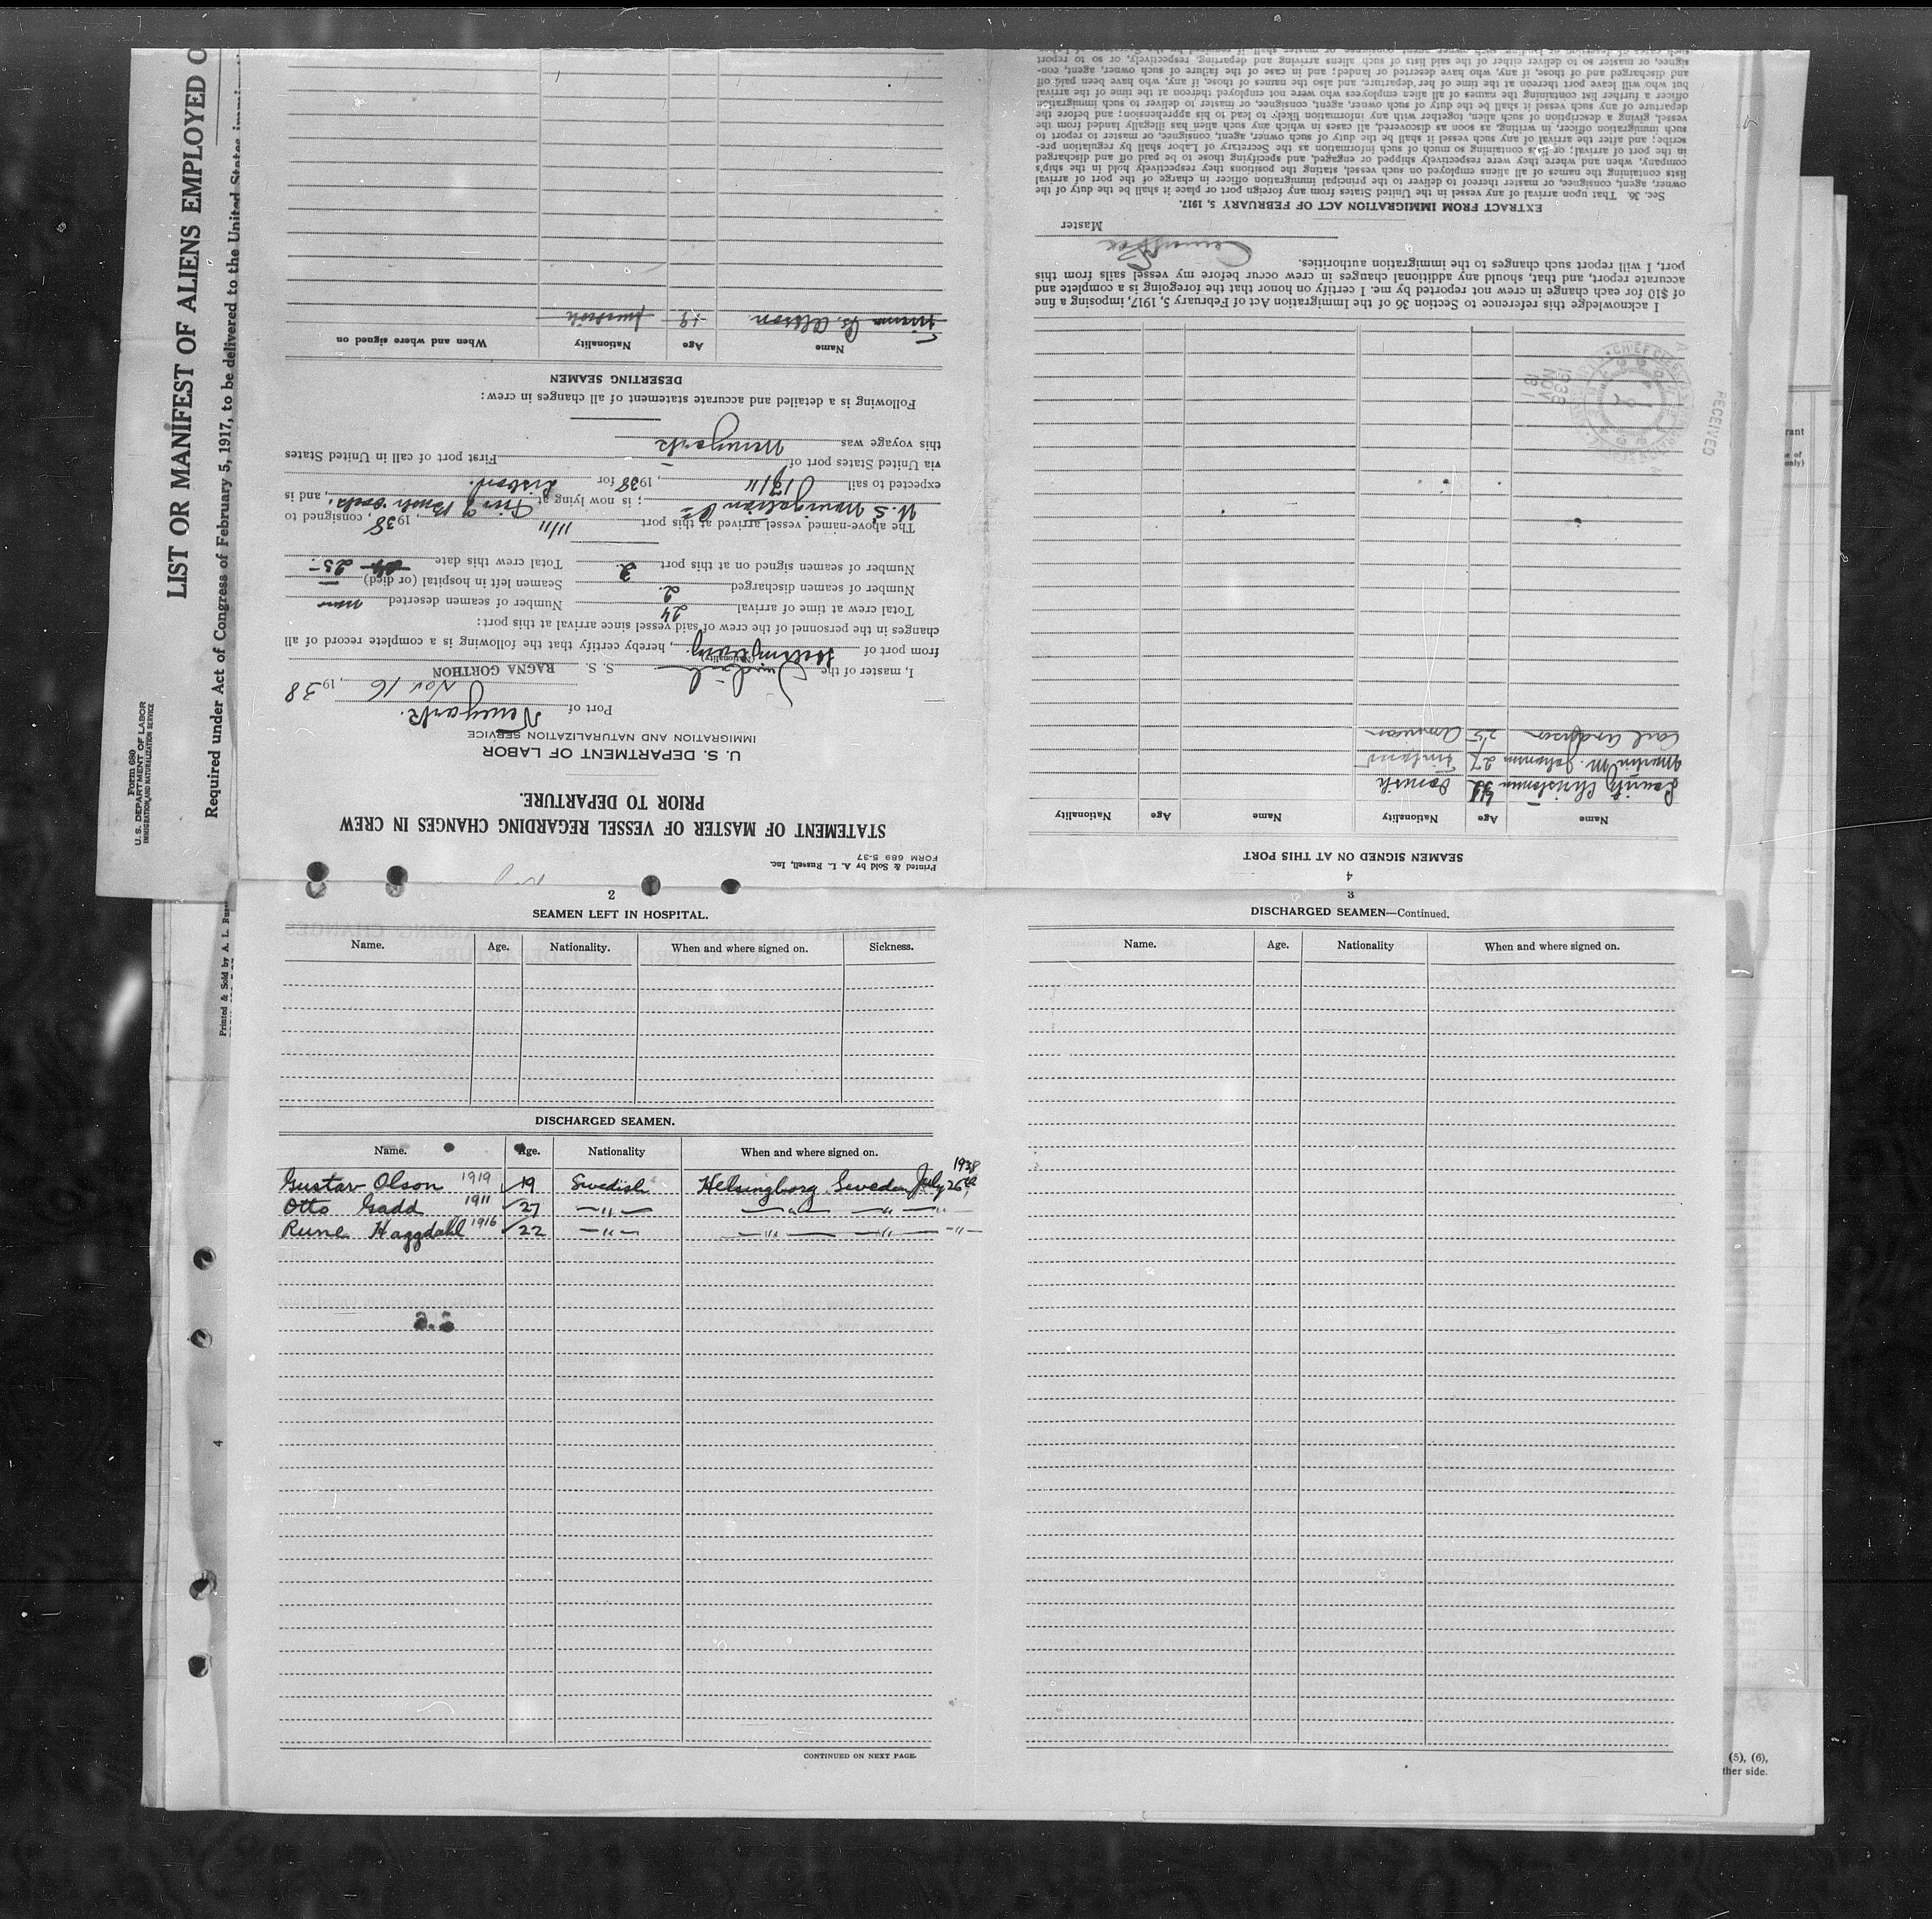 LIST OR MANIFEST OF ALIENS EMPLOYED O
Required under Act of Congress of February 5, 1917, to be delivered to the United States immi
Form 680
U. S. DEPARTMENT OF LABOR
IMMIGRATION AND NATURALIZATION SERVICE
Printed & Sold by A. L. Rus
4
Printed & Sold by A. L. Russell, Inc.
FORM 689 5-37
STATEMENT OF MASTER OF VESSEL REGARDING CHANGES IN CREW
PRIOR TO DEPARTURE.
U. S. DEPARTMENT OF LABOR
IMMIGRATION AND NATURALIZATION SERVICE
Port of Newyork. Nov 16, 1938
I, master of the Swedish S. S. RAGNA GORTHON
(Nationality)
from port of Helsingborg, hereby certify that the following is a complete record of all
changes in the personnel of the crew of said vessel since arrival at this port:
Total crew at time of arrival 24 Number of seamen deserted none
Number of seamen discharged 2. Seamen left in hospital (or died) —
Number of seamen signed on at this port 3 Total crew this date 25
The above-named vessel arrived at this port 11/11, 1938, consigned to
U.S. Navigation Co; is now lying at, and is
expected to sail 17/11, 1938 for Lisbon.
via United States port of — First port of call in United States
this voyage was Newyork
Following is a detailed and accurate statement of all changes in crew:
DESERTING SEAMEN
Name Age Nationality When and where signed on
B. Olsson. 19
4
SEAMEN SIGNED ON AT THIS PORT
Name Age Nationality Name Age Nationality
Lauritz Christensen Danish
Martin M. Johansen 27 Finland
Carl Anderson 25 American
RECEIVED
CHIEF
1938 NOV 18
I acknowledge this reference to Section 36 of the Immigration Act of February 5, 1917, imposing a fine
of $10 for each change in crew not reported by me. I certify on honor that the foregoing is a complete and
accurate report, and that, should any additional changes in crew occur before my vessel sails from this
port, I will report such changes to the immigration authorities.
Master
EXTRACT FROM IMMIGRATION ACT OF FEBRUARY 5, 1917.
Sec. 36. That upon arrival of any vessel in the United States from any foreign port or place it shall be the duty of the
owner, agent, consignee, or master thereof to deliver to the principal immigration officer in charge of the port of arrival
lists containing the names of all aliens employed on such vessel, stating the positions they respectively hold in the ship's
company, when and where they were respectively shipped or engaged, and specifying those to be paid off and discharged
in the port of arrival; or lists containing so much of such information as the Secretary of Labor shall by regulation pre-
scribe; and after the arrival of any such vessel it shall be the duty of such owner, agent, consignee, or master to report to
such immigration officer, in writing, as soon as discovered, all cases in which any such alien has illegally landed from the
vessel, giving a description of such alien, together with any information likely to lead to his apprehension; and before the
departure of any such vessel it shall be the duty of such owner, agent, consignee, or master to deliver to such immigration
officer a further list containing the names of all alien employees who were not employed thereon at the time of the arrival
but who will leave port thereon at the time of her departure, and also the names of those, if any, who have been paid off
and discharged and of those, if any, who have deserted or landed; and in case of the failure of such owner, agent, con-
signee, or master so to deliver either of the said lists of such aliens arriving and departing, respectively, or so to report
2
SEAMEN LEFT IN HOSPITAL.
Name. Age. Nationality. When and where signed on. Sickness.
DISCHARGED SEAMEN.
Name. Age. Nationality When and where signed on.
1938
Gustav Olson 1919 19 Swedish Helsingborg Sweden July 26th
Otto Gadd 1911 27 —"— —"— —"— —"—
Rune Haggdahl 1916 22 —"— —"— —"— —"—
CONTINUED ON NEXT PAGE.
3
DISCHARGED SEAMEN—Continued.
Name. Age. Nationality When and where signed on.
rant
e of
only)
(5), (6),
ther side.